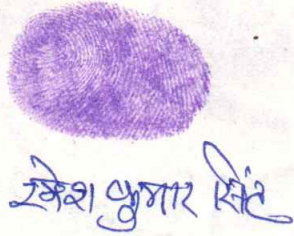 रमेश कुमार सिंह